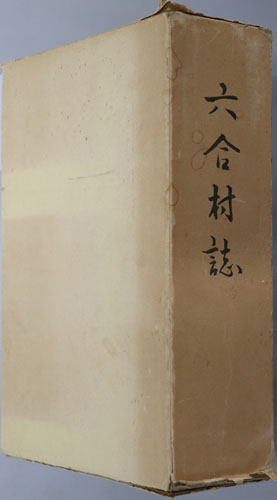 六合村誌